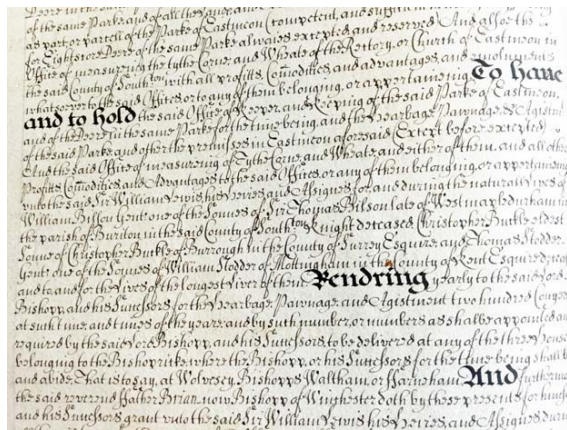 Deere in the same Parke and of all the
as part or partell of the Parke of Eastmeon competent, and
for Eightscore Deere of the same Parke alwaies excepted and reserved And alsoe the
Office of measuring the tythe Corne and Wheate of the Rectory or Church of Eastmeon in
the said County of Southton with all profitts, Comodities and advantages, and emoluments
whatsoever to the said Offices or to any of them belonging, or appertaineing To have
and to hold the said Office of Keeper, and keeping of the said Parke of Eastmeon,
and of the Deere in the same Parke for the time being, and the Hearbage Pawnage, & Agistmt
of the said Parke and other the premisses in Eastmeon aforesaid Except before excepted)
And the said Office of measureing of Tythe Corne, and Wheate and either of them, and all other
Profitts Comodities, and Advantages to the said Offices, or any of them belonging, or appertaineing
vnto the said Sir William Lewis his Heires, and Assignes for, and during the naturall Lives of
William Bilson Gent: one of the Sonnes of Sir Thomas Bilson late of Westmapledurham in
the parish of Buriton in the said County of Southton Knight deceased, Christopher Buckle eldest
Sonne of Christopher Buckle of Burrough in the County of Surrey Esquire and Thomas Stodder
Gent: one of the Sonnes of William Stodder of Mottingham in the County of Kent Esquire
and to, and for the Lives of the longest Liver of them Rendring yearly to the said Lord
Bishopp, and his Successors for the Hearbage, Pawnage, and Agistment two hundred
at such time, and times of the yeare, and by such number, or numbers as shalbe appointed an
required by the said Lord Bishopp, and his Successors to be delivered at any of the three
belonging to the Bishopricke where the Bishopp, or his Successors for the time being shall
and abide, That is to say, at Wolvesey, Bishopps Waltham, or Farneham And furthermore
the said reverend Father Brian now Bishopp of Winchester doth by these presents, for
and his Successors grant vnto the said Sir William Lewis his Heires, and Assignes